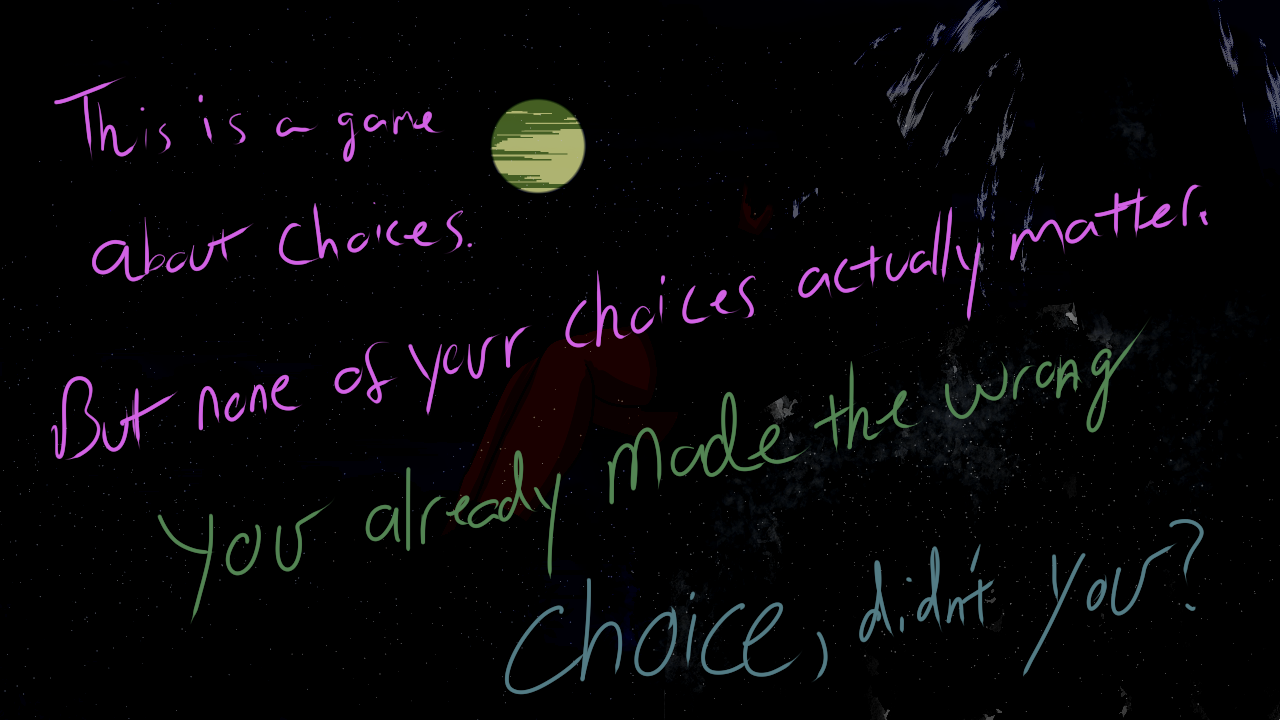 This is a game
about choices.
But none of your choices actually matter.
You already made the wrong
choice, didn't you?